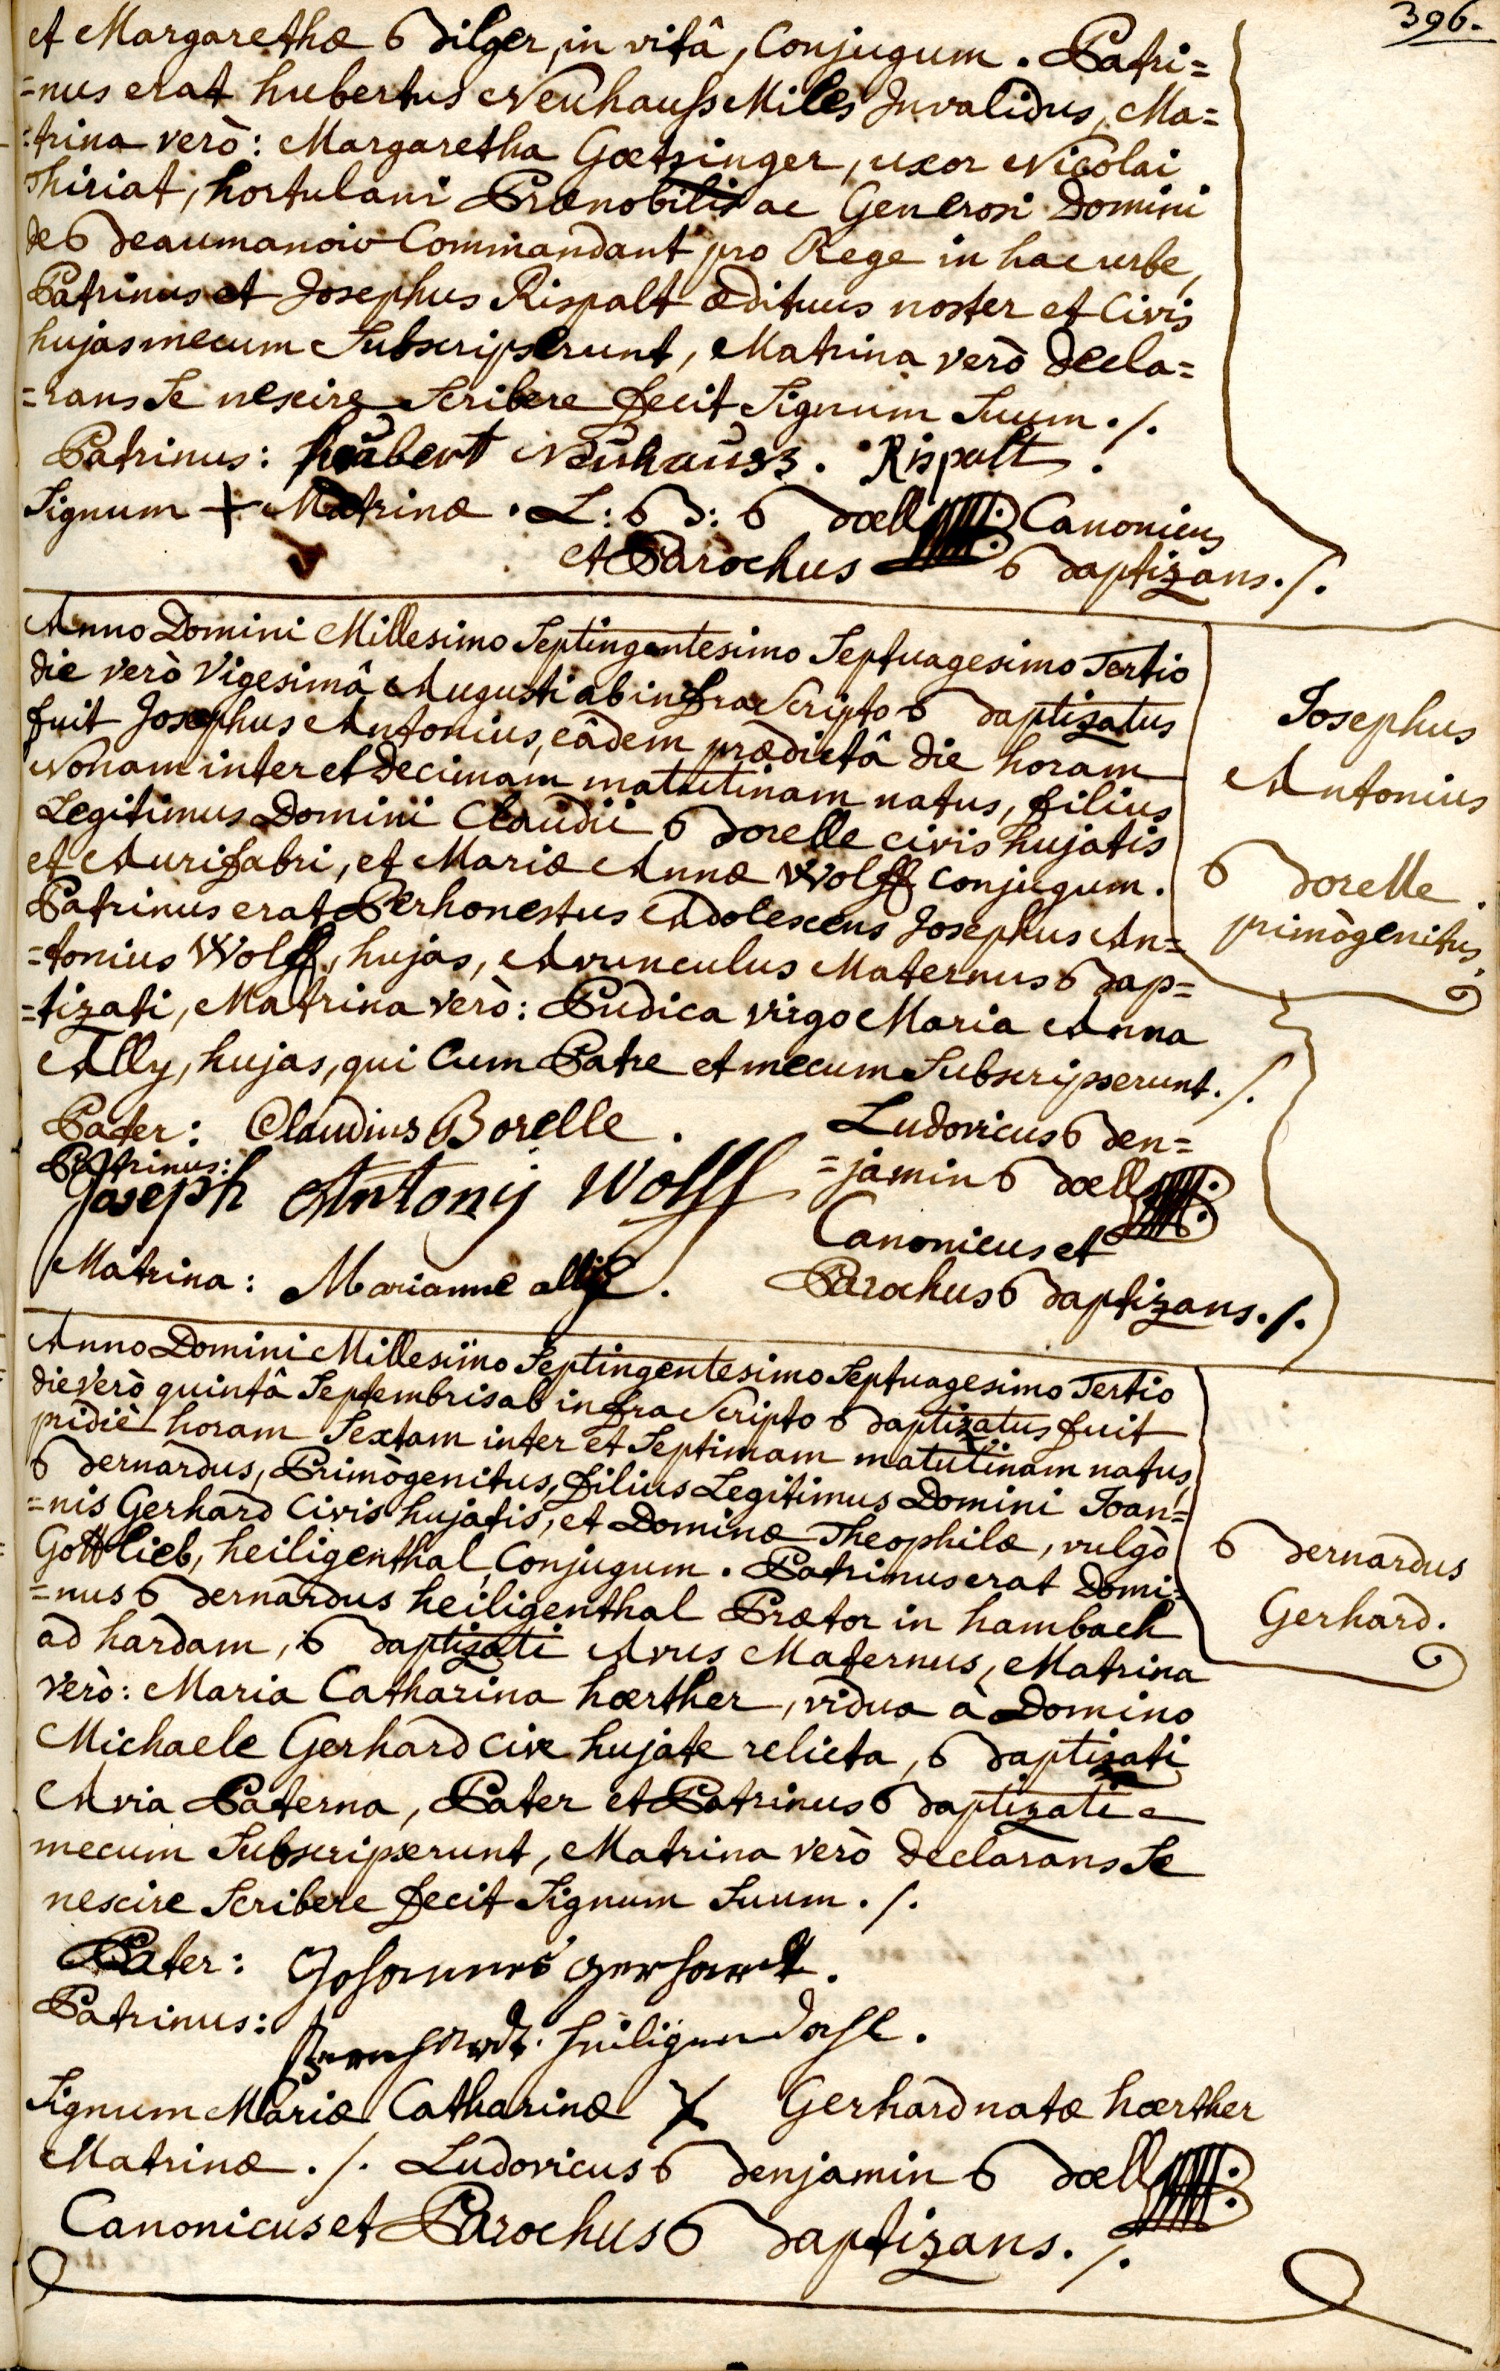 396.
et Margarethæ Bilger, in vitâ, Conjugum. Patri=
=nus erat hubertus Neuhauss Miles Invalidus, Ma=
=trina verò: Margaretha Goetzinger, uxor Nicolai
Thiriat, hortulani Prænobilis ac Generosi Domini
de Beaumanoir Commandant pro Rege in hac urbe,
Patrinus et Josephus Rispalt ædituus noster et Civis
hujas mecum Subscripserunt, Matrina verò decla=
=rans Se nescire Scribere fecit Signum Suum ./.
Patrinus: hubert Neuhauss. Rispalt.
Signum + Matrinæ. L: B: Boell Canonicus
et Parochus Baptizans ./.
Anno Domini Millesimo Septingentesimo Septuagesimo Tertio
die verò Vigesimâ Augusti ab infra Scripto Baptizatus
fuit Josephus Antonius, eâdem prædictâ die horam
Nonam inter et Decimam matutinam natus, filius
Legitimus Domini Claudii Borelle civis hujatis
et Aurifabri, et Mariæ Annæ Wolff conjugum.
Patrinus erat Perhonestus Adolescens Josephus An=
=tonius Wolff, hujas, Avunculus Maternus Bap=
=tizati, Matrina verò: Pudica virgo Maria Anna
Ally, hujas, qui Cum Patre et mecum Subscripserunt ./.
Josephus
Antonius
Borelle.
primògenitus.
Pater: Claudius Borelle.
Patrinus:
Joseph Antonij Wolff
Matrina: Marianne
Ludovicus Ben=
=jamin Boell
Canonicus et
Parochus Baptizans ./.
Anno Domini Millesimo Septingentesimo Septuagesimo Tertio
die verò quintâ Septembris ab infra Scripto Baptizatus fuit
pridiè horam Sextam inter et Septimam matutinam natus,
Bernardus, Primògenitus, filius Legitimus Domini Joan=
=nis Gerhard Civis hujatis, et Dominæ Theophilæ, vulgò
Gottlieb, heiligenthal, Conjugum. Patrinus erat Domi=
=nus Bernardus heiligenthal Prætor in hambach
ad hardam, Baptizati Avus Maternus, Matrina
verò: Maria Catharina hoerther, vidua à Domino
Michaele Gerhard Cive hujate relicta, Baptizati
Avia Paterna, Pater et Patrinus Baptizati
mecum Subscripserunt, Matrina verò declarans Se
nescire Scribere fecit Signum Suum ./.
Bernardus
Gerhard.
Pater: Johannes Gerhardt.
Patrinus: Bernhardt heiligendahl.
Signum Mariæ Catharinæ X Gerhard natæ hoerther
Matrinæ ./. Ludovicus Benjamin Boell
Canonicus et Parochus Baptizans ./.